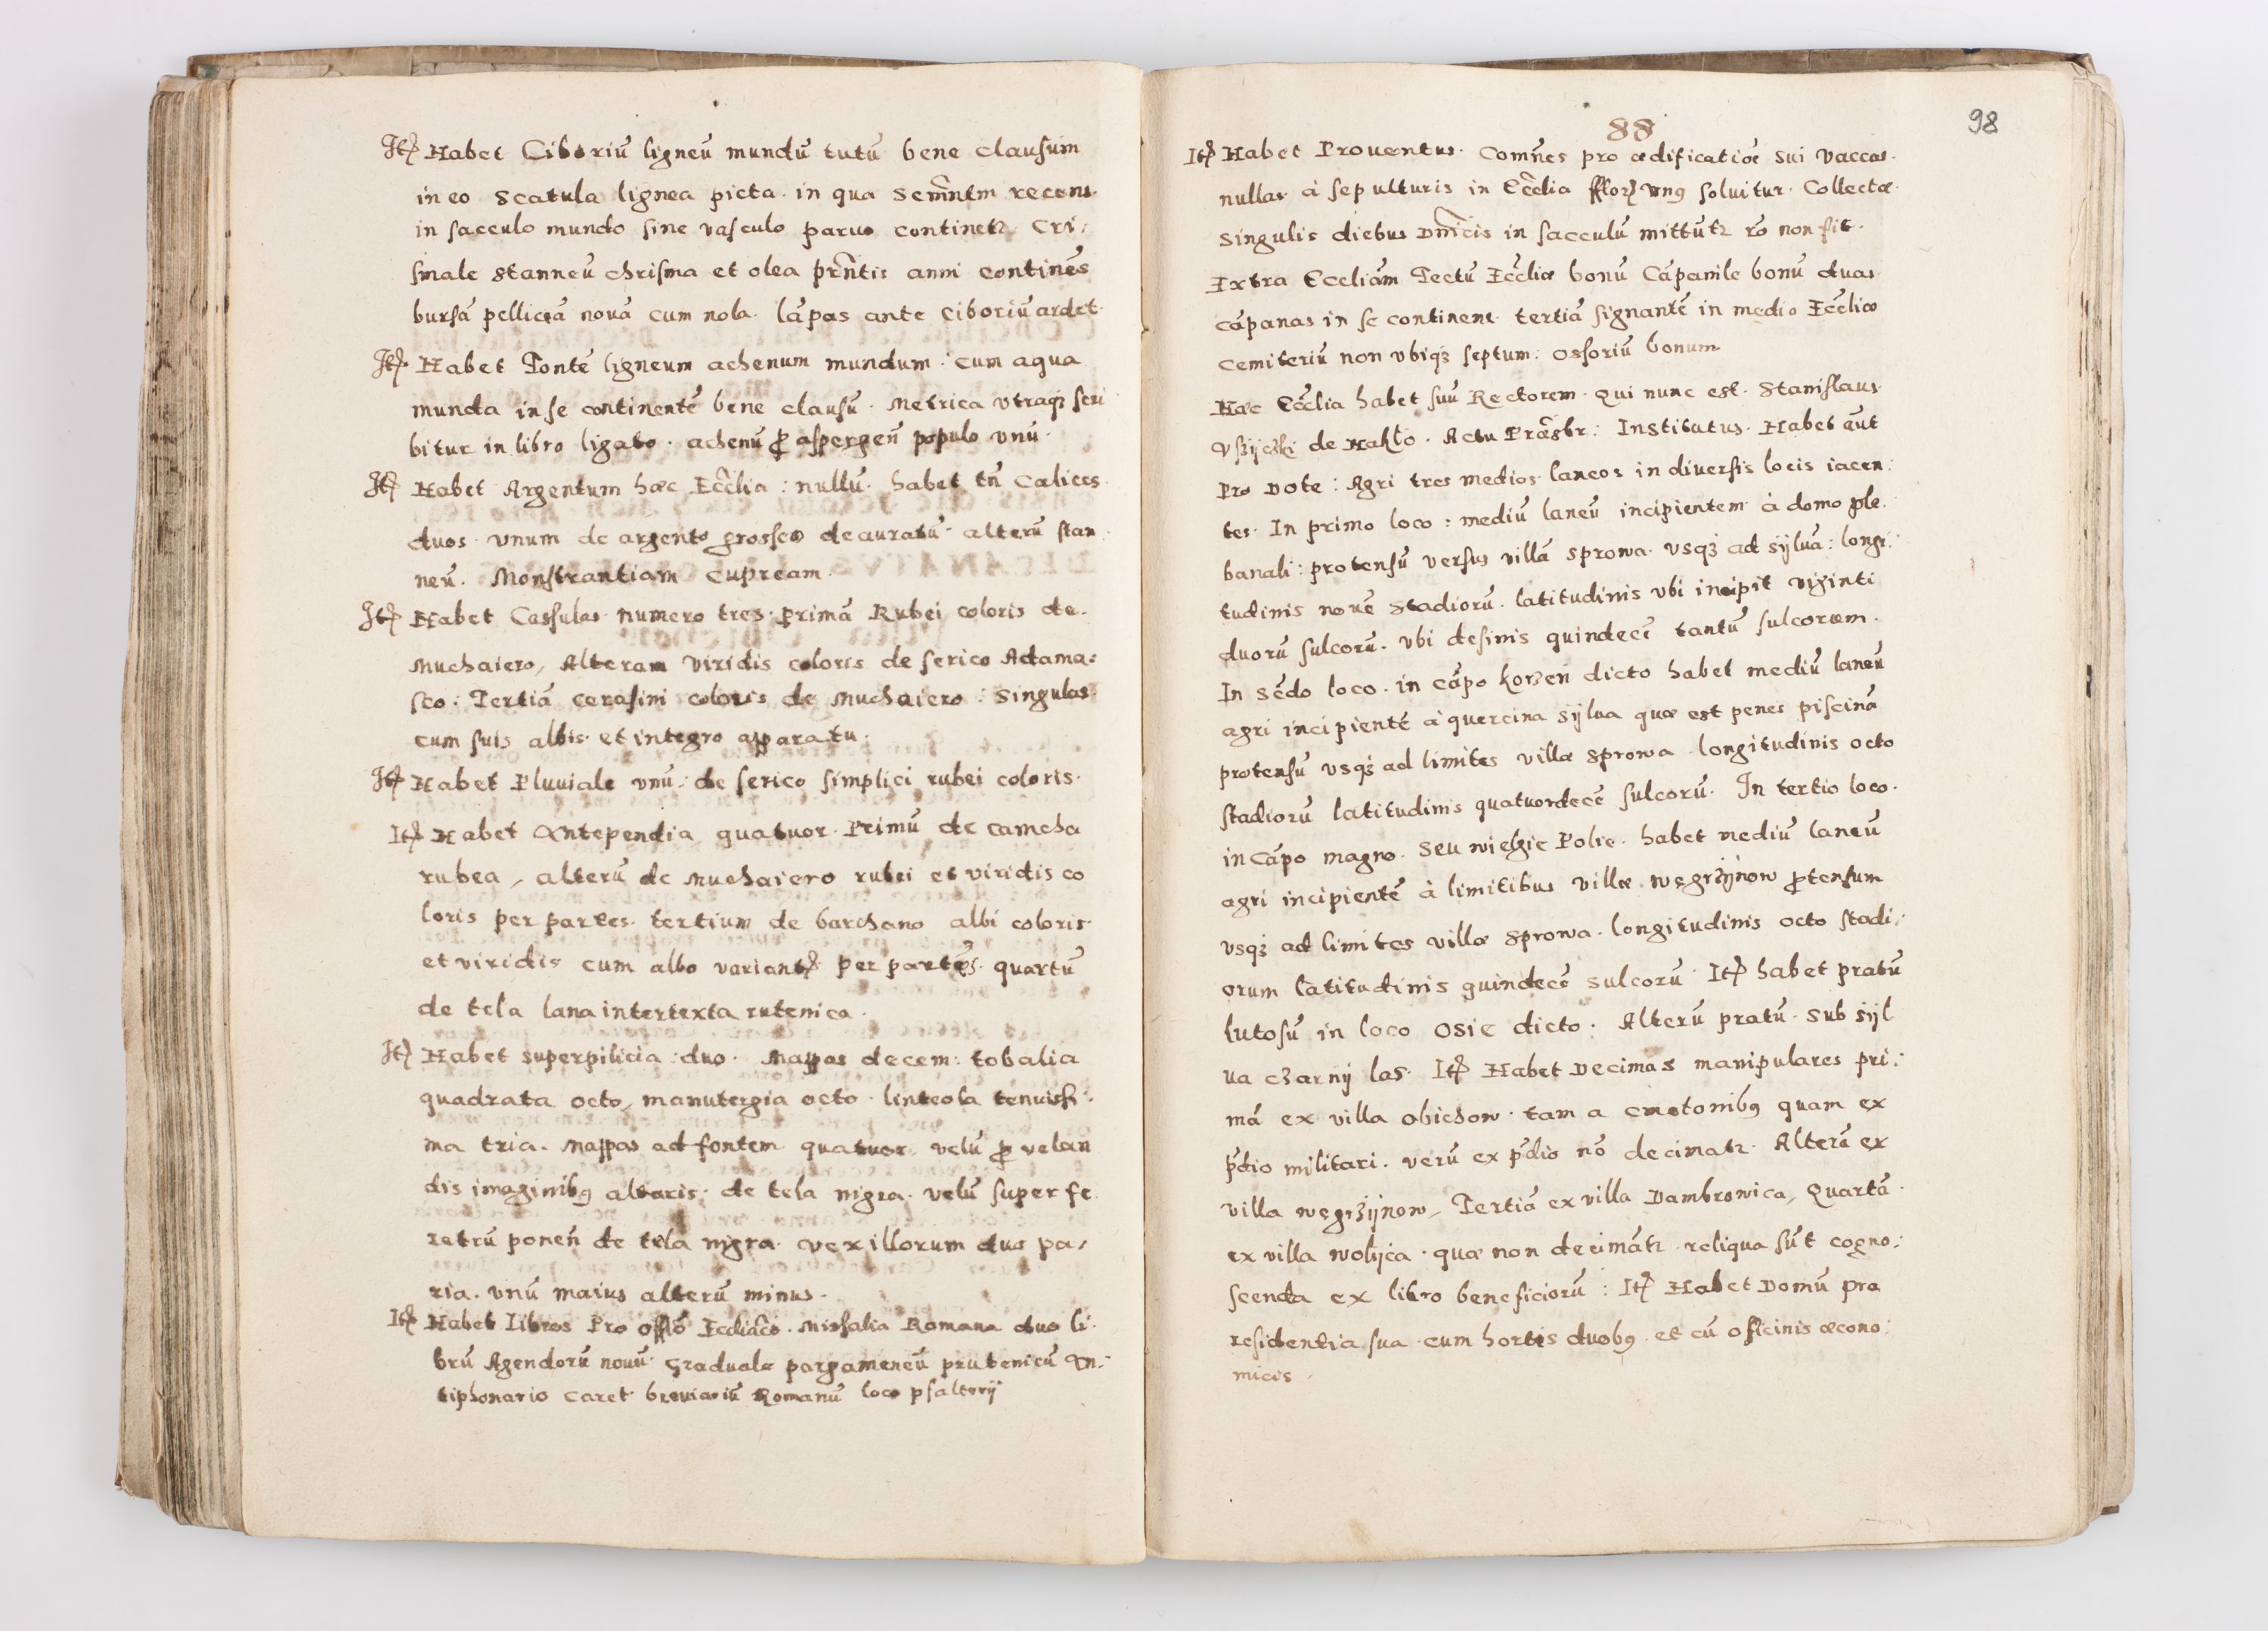 Itē Habet Ciboriū ligneū mundū tutū bene clausum
in eo scatula lignea picta. in qua Scm̄ntm recens.
in sacculo mundo sine vasculo paruo continetr. Cri:
smale stanneū chrisma et olea prn̄tis anni continēs
bursā pelliceā nouā cum nola. lāpas ante ciboriū ardet.
Itē Habet Fontē ligneum achenum mundum: cum aqua
munda in se continentē bene clausū. Metrica vtraqȝ scri
bitur in libro ligato. achenū ꝓ aspergen̄ populo vnū.
Itē Habet Argentum hæc Eccl̄ia: nullū. habet tn̄ Calices.
duos. vnum de argento grosseo deauratū. alterū stan
neū. Monstrantiam cupream.
Itē Habet Cassulas numero tres. Primā Rubei coloris de.
Muchaiero, Alteram viridis coloris de serico Adama:
sco: Tertiā cerasini coloris de Muchaiero: Singulas.
cum suis albis. et integro apparatu.
Itē Habet Pluuiale vnū. de serico simplici rubei coloris.
Itē Habet Antependia quatuor. Primū de camcha
rubea, alterū de Muchaiero rubei et viridis co
loris per partes. tertium de barchano albi coloris.
et viridis cum albo variantē per partes. quartū
de tela lana intertexta rutenica.
Itē Habet superpilicia: duo. Mappas decem: tobalia
quadrata octo, manutergia octo. linteola tenuissi:
ma tria. Mappas ad fontem quatuor. velū ꝓ velan
dis imaginibꝯ altaris. de tela nigra. velū super fe
retrū ponen̄ de tela nigra. vexillorum duo pa,
ria. vnū maius alterū minus.
Itē Habet Libros Pro offō Ecclīaco. Missalia Romana duo li.
brū Agendorū nouū. Graduale pargameneū prutenicū An:
tiphonario caret. breuiariū Romanū loco psalterij
88
98
Itē Habet Prouentus. Com̄nes pro ædificatiōe sui vaccas.
nullas à sepulturis in Eccl̄ia fflorꝫ vnꝯ soluitur. Collectæ.
singulis diebus Dn̄icis in sacculū mittūtr rō non fit.
Extra Eccliām Tectū Eccl̄iæ bonū Cāpanile bonū duas
cāpanas in se continent. tertiā signantē in medio Eccl̄iæ
cemiteriū non vbiqȝ septum: ossoriū bonum
Hæc Eccl̄ia habet suū Rectorem. qui nunc est. Stanislaus.
Vszijcski de Nakło. Actu Præsbr: Institutus. Habet aūt
Pro Dote: Agri tres medios laneos in diuersis locis iacen:
tes. In primo loco: mediū laneū incipientem à domo ple.
banali: protensū versus villā Sprowa. vsqȝ ad sijluā: longi:
tudinis nouē stadiorū. latitudinis vbi incipit viginti
duorū sulcorū. vbi desinis quindecē tantū sulcorum.
In sēdo loco. in cāpo korzen dicto habet mediū laneū
agri incipientē à quercina sijlua quæ est penes piscinā
protensū vsqȝ ad limites villæ Sprowa longitudinis octo
stadiorū latitudinis quatuordecē sulcorū. In tertio loco.
in cāpo magno. seu wielgie Polie. habet mediū laneū
agri incipientē à limitibus villæ węgrzijnow ꝓtensum
vsqȝ ad limites villæ Sprowa. longitudinis octo stadi,
orum latitudinis quindecē sulcorū. Itē habet pratū
lutosū in loco Osie dicto: Alterū pratū. sub sijl
ua czarnij las. Itē Habet Decimas manipulares pri:
mā ex villa obichow. tam a cmetonibꝯ quam ex
p̄dio militari. verū ex p̄dio nō decimatr. Alterā ex
villa węgrzijnow, Tertiā ex villa Dambrowica, Quartā.
ex villa wolijca. quæ non decimātr. reliqua sūt cogno:
scenda ex libro beneficiorū: Itē Habet Domū pro
residentia sua. cum hortis duobꝯ. et cū officinis œcono:
micis.